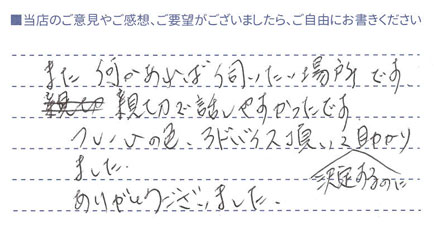 ■当店のご意見やご感想、ご要望がございましたら、ご自由にお書きください
また何かあれば伺いたい場所です
親切で話しやすかったです。
の色、アドバイス頂いて助かり
決定するのに
ました。
ありがとうございました。